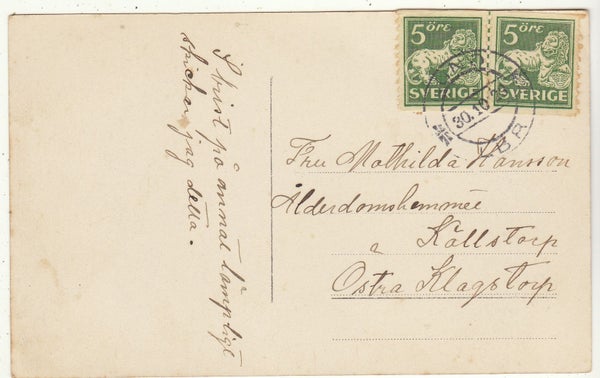 I brist på annat lämpligt
skickar jag detta.
5 öre
SVERIGE
5 öre
SVERIGE
30.10
Fru Mathilda Hansson
Ålderdomshemmee
Källstorp
Östra Klagstorp